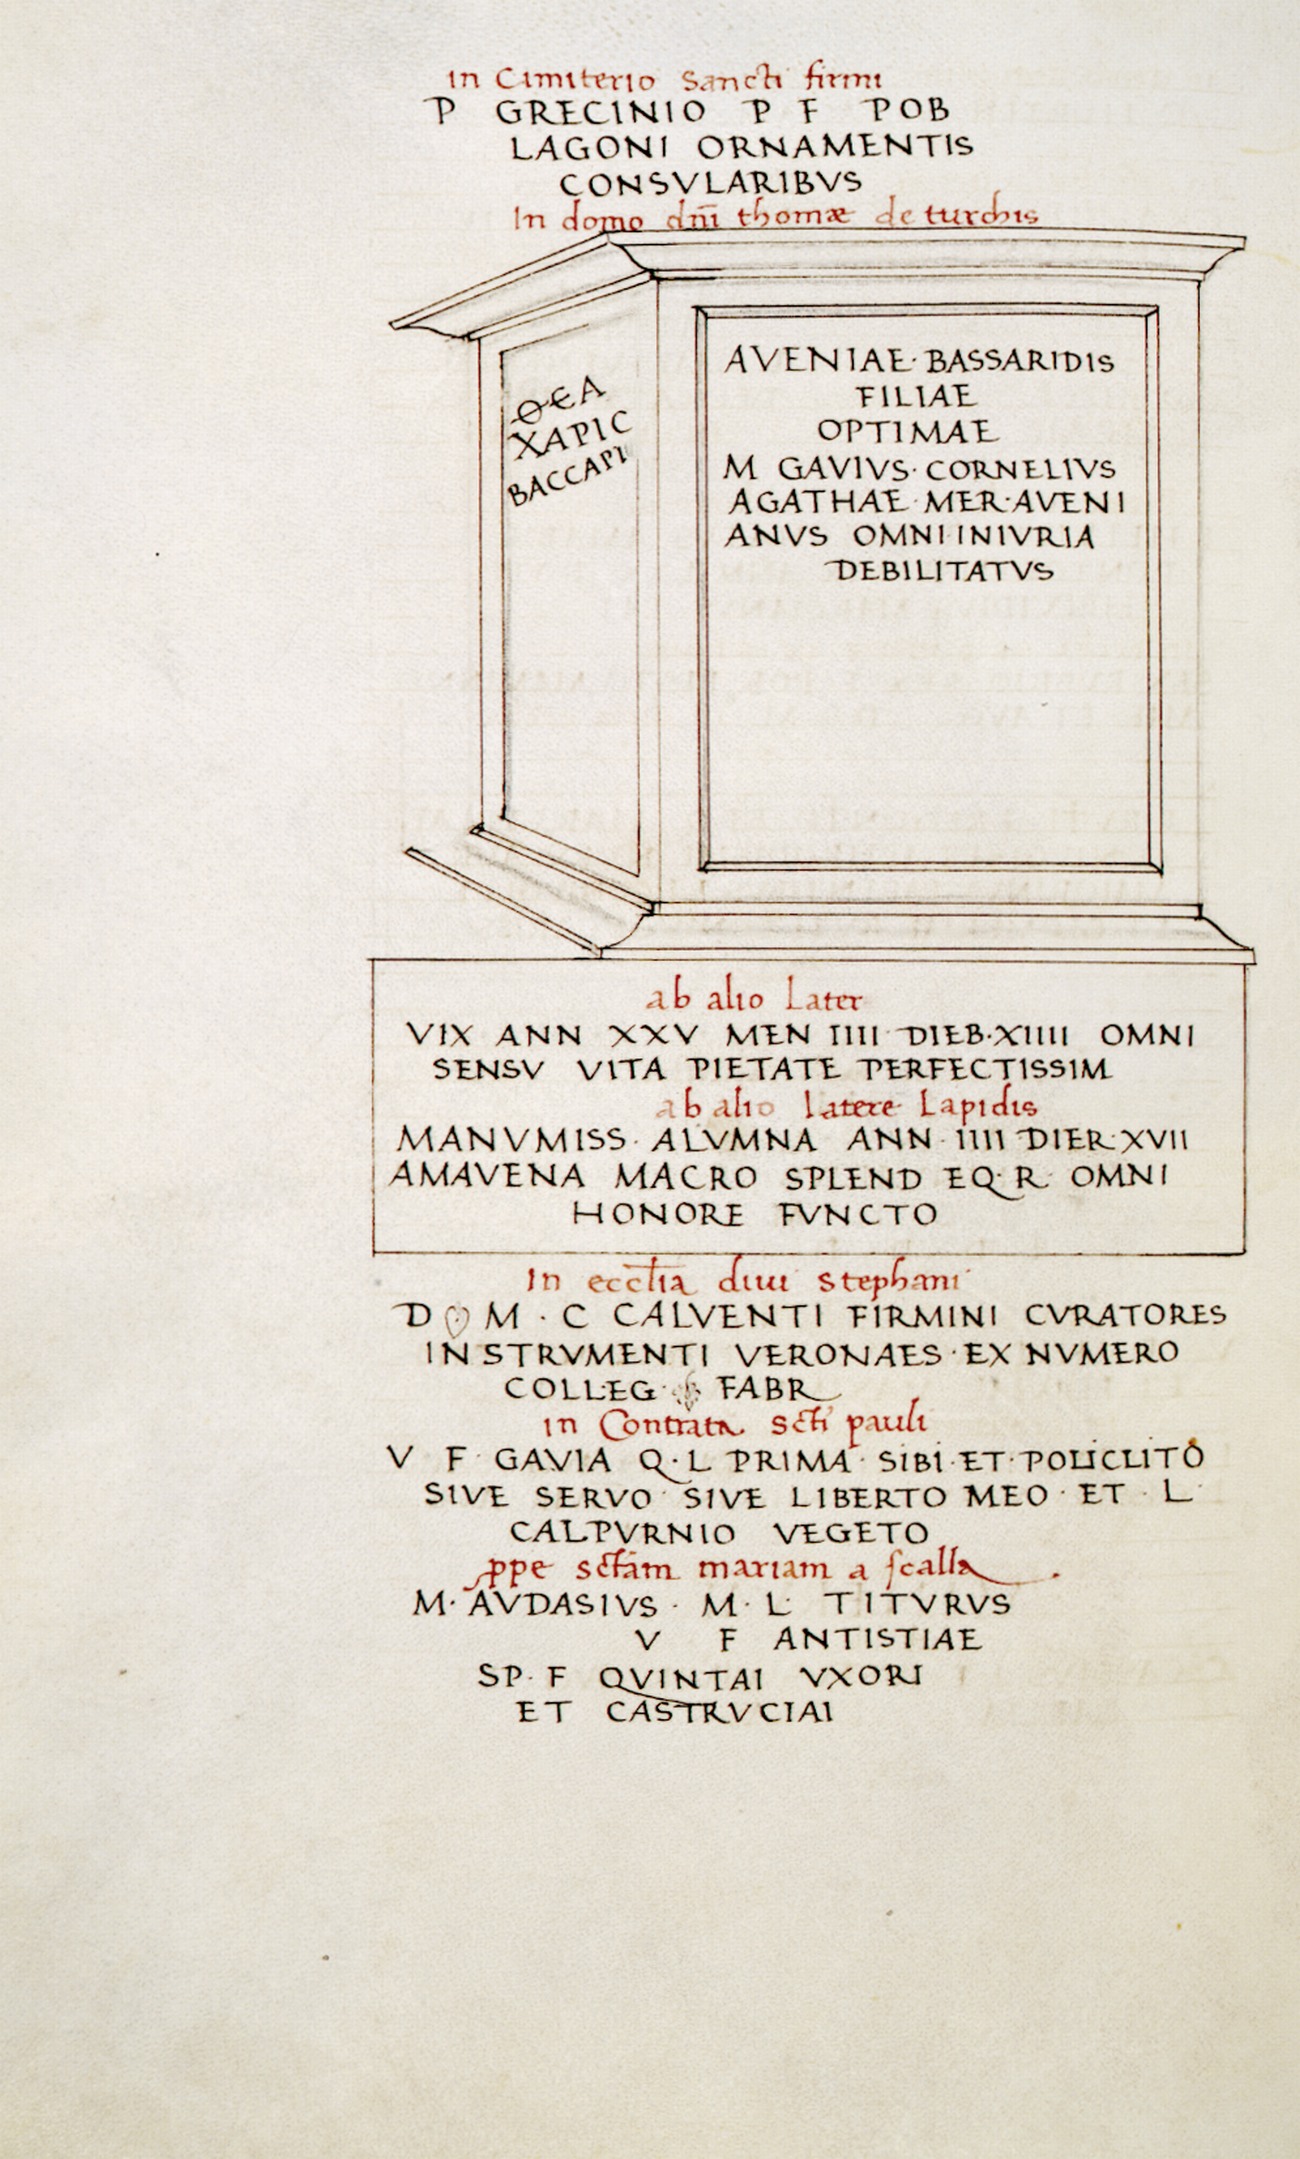 in Cimiterio Sancti firmi
P GRECINIO P F POB
LAGONI ORNAMENTIS
CONSVLARIBVS
In domo dnī thomæ de turchis
ΘΕΑ
ΧΑΡΙϹ
ΒΑϹϹΑΡΙ
AVENIAE · BASSARIDIS
FILIAE
OPTIMAE
M GAVIVS · CORNELIVS
AGATHAE · MER · AVENI
ANVS OMNI INIVRIA
DEBILITATVS
ab alio Later
VIX ANN XXV MEN IIII DIEB · XIIII OMNI
SENSV VITA PIETATE PERFECTISSIM
ab alio latere Lapidis
MANVMISS · ALVMNA ANN · IIII DIER · XVII
AMAVENA MACRO SPLEND EQ · R OMNI
HONORE FVNCTO
In eccl̄ia diui stephani
D ❦ M · C CALVENTI FIRMINI CVRATORES
INSTRVMENTI VERONAES · EX NVMERO
COLLEG · ❦ FABR
in Contrata sc̄ti pauli
V F · GAVIA Q · L PRIMA · SIBI · ET · POLICLITO
SIVE SERVO · SIVE LIBERTO MEO · ET · L
CALPVRNIO VEGETO
ꝓpe sc̄tam mariam a scalla .
M · AVDASIVS · M · L · TITVRVS
V F ANTISTIAE
SP · F QVINTAI VXORI
ET CASTRVCIAI